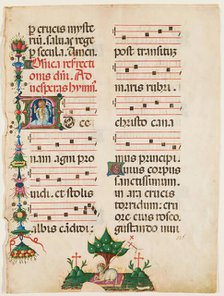 p crucis myste
rium. saluas rege
p secula. amen.
Dñica resurrecti
onis dñi. Ad
vesperas hymn.
nam agni pro
uidi. et stolis
albis canditi.
post transitum
maris rubri.
christo cana
mus principi.
Cuius corpus
sanctissimum
in ara crucis
torridum. cru
ore eius roseo.
gustando uiui